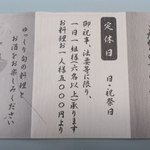 定休日
日・祝祭日
御祝事、法要等に限り、
一日一組様(六名以上)承ります
お料理お一人様五〇〇〇円より
ゆっくり旬の料理と
お酒をお楽しみください